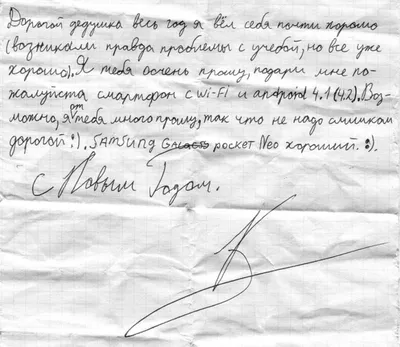 Дорогой дедушка весь год я вёл себя почти хорошо
(возникали правда проблемы с учебой, но все уже
хорошо). Я тебя очень прошу, подари мне по-
жалуйста смартфон с Wi-Fi и android 4.1 (4.2). Воз-
можно, я от тебя много прошу, так что не надо слишком
дорогой :). SAMSUNG Galacss pocket Neo хороший. :).
С Новым Годом.